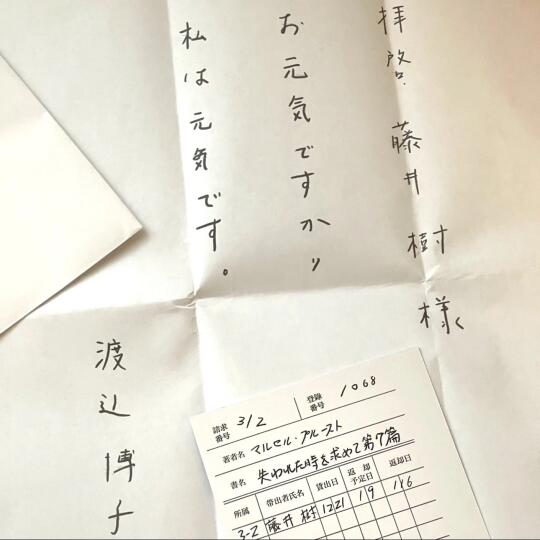 拝啓 藤井樹様
お元気ですか。
私は元気です。
渡辺博子
請求番号 312 登録番号 1068
著者名 マルセル・プルースト
書名 失われた時を求めて第7篇
所属 帯出者氏名 貸出日 返却予定日 返却日
3-2 藤井樹 12 21 1 9 1 6